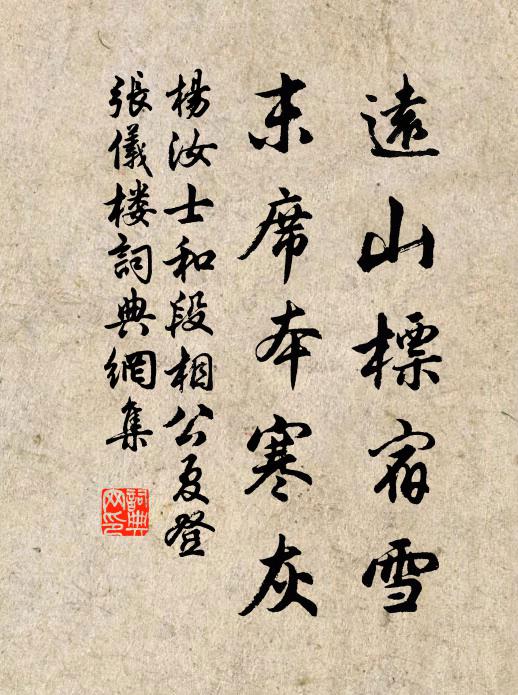 遠山標宿雪
末席本寒灰
楊汝士和段相公夏登
張儀楼詞典網集
詞典网印